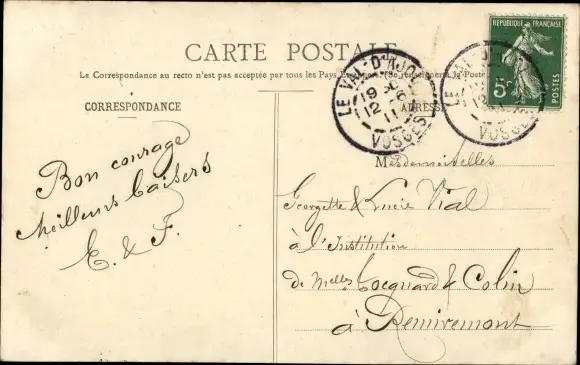 CARTE POSTALE
La Correspondance au recto n'est pas acceptée par tous les Pays
CORRESPONDANCE
ADRESSE
RÉPUBLIQUE FRANÇAISE
5c
POSTES
LE VAL-D'AJOL
12 - 6
11
VOSGES
VOSGES
Bon courage
Meilleurs baisers
E. & F.
Mesdemoiselles
Georgette & Lucie Vial
à l'Institution
de Melles Cocquard & Colin
à Remiremont